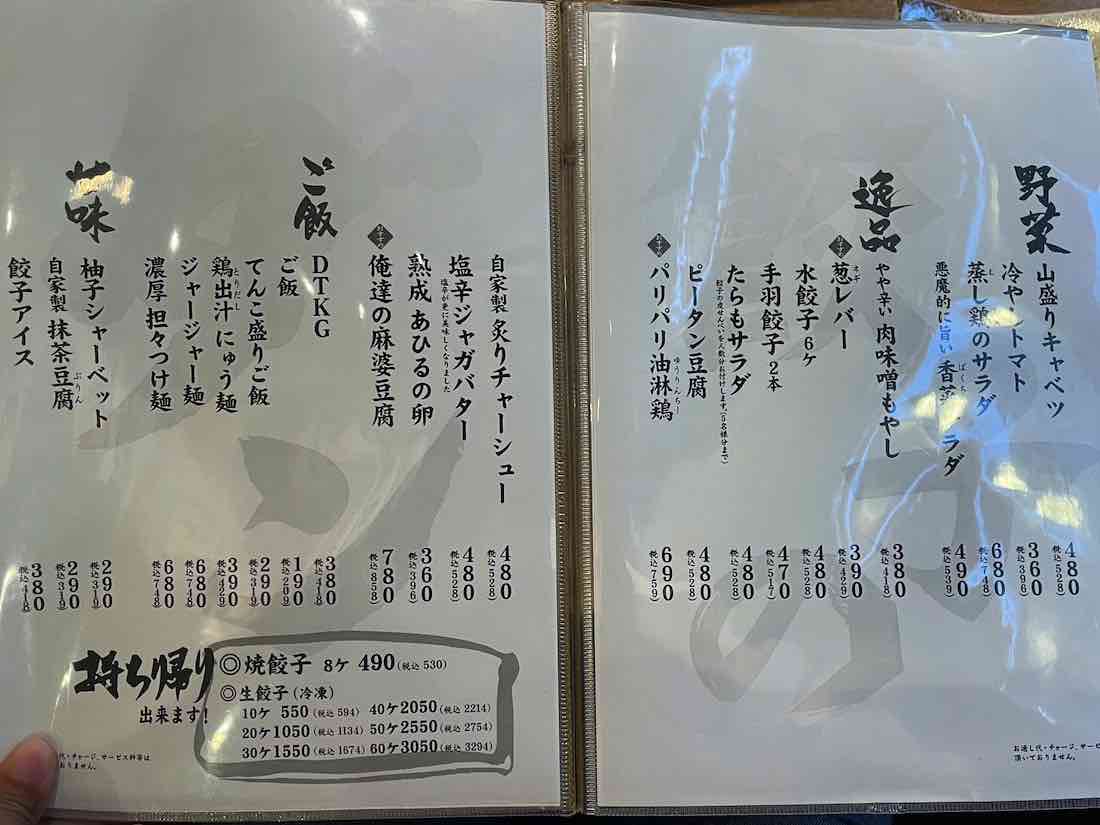 野菜
山盛りキャベツ
480
(税込528)
冷やしトマト
360
(税込396)
蒸し鶏のサラダ
680
(税込748)
悪魔的に旨い
ぱくちー
490
(税込539)
逸品
やや辛い 肉味噌もやし
380
(税込418)
おすすめ
ネギ
葱レバー
390
(税込429)
水餃子 6ケ
480
(税込528)
手羽餃子 2本
470
(税込517)
たらもサラダ
餃子の皮せんべいを人数分お付けします。(5名様分まで)
480
(税込528)
ピータン豆腐
480
(税込528)
おすすめ
ゆうりんちー
パリパリ油淋鶏
690
(税込759)
お通し代・チャージ、サービ
頂いておりません。
自家製 炙りチャーシュー
480
(税込528)
塩辛ジャガバター
塩辛が更に美味しくなりました
480
(税込528)
熟成 あひるの卵
360
(税込396)
おすすめ
俺達の麻婆豆腐
780
(税込858)
ご飯
DTKG
380
(税込418)
ご飯
190
(税込209)
てんこ盛りご飯
290
(税込319)
とりだし
鶏出汁 にゅう麺
390
(税込429)
ジャージャー麺
680
(税込748)
濃厚 担々つけ麺
680
(税込748)
甘味
柚子シャーベット
290
(税込319)
自家製 抹茶豆腐
ぷりん
290
(税込319)
餃子アイス
380
(税込418)
持ち帰り
出来ます!
◎焼餃子 8ケ 490(税込 530)
◎生餃子(冷凍)
10ケ 550(税込 594) 40ケ2050(税込 2214)
20ケ1050(税込 1134) 50ケ2550(税込 2754)
30ケ1550(税込 1674) 60ケ3050(税込 3294)
代・チャージ、サービス料等は
おりません。